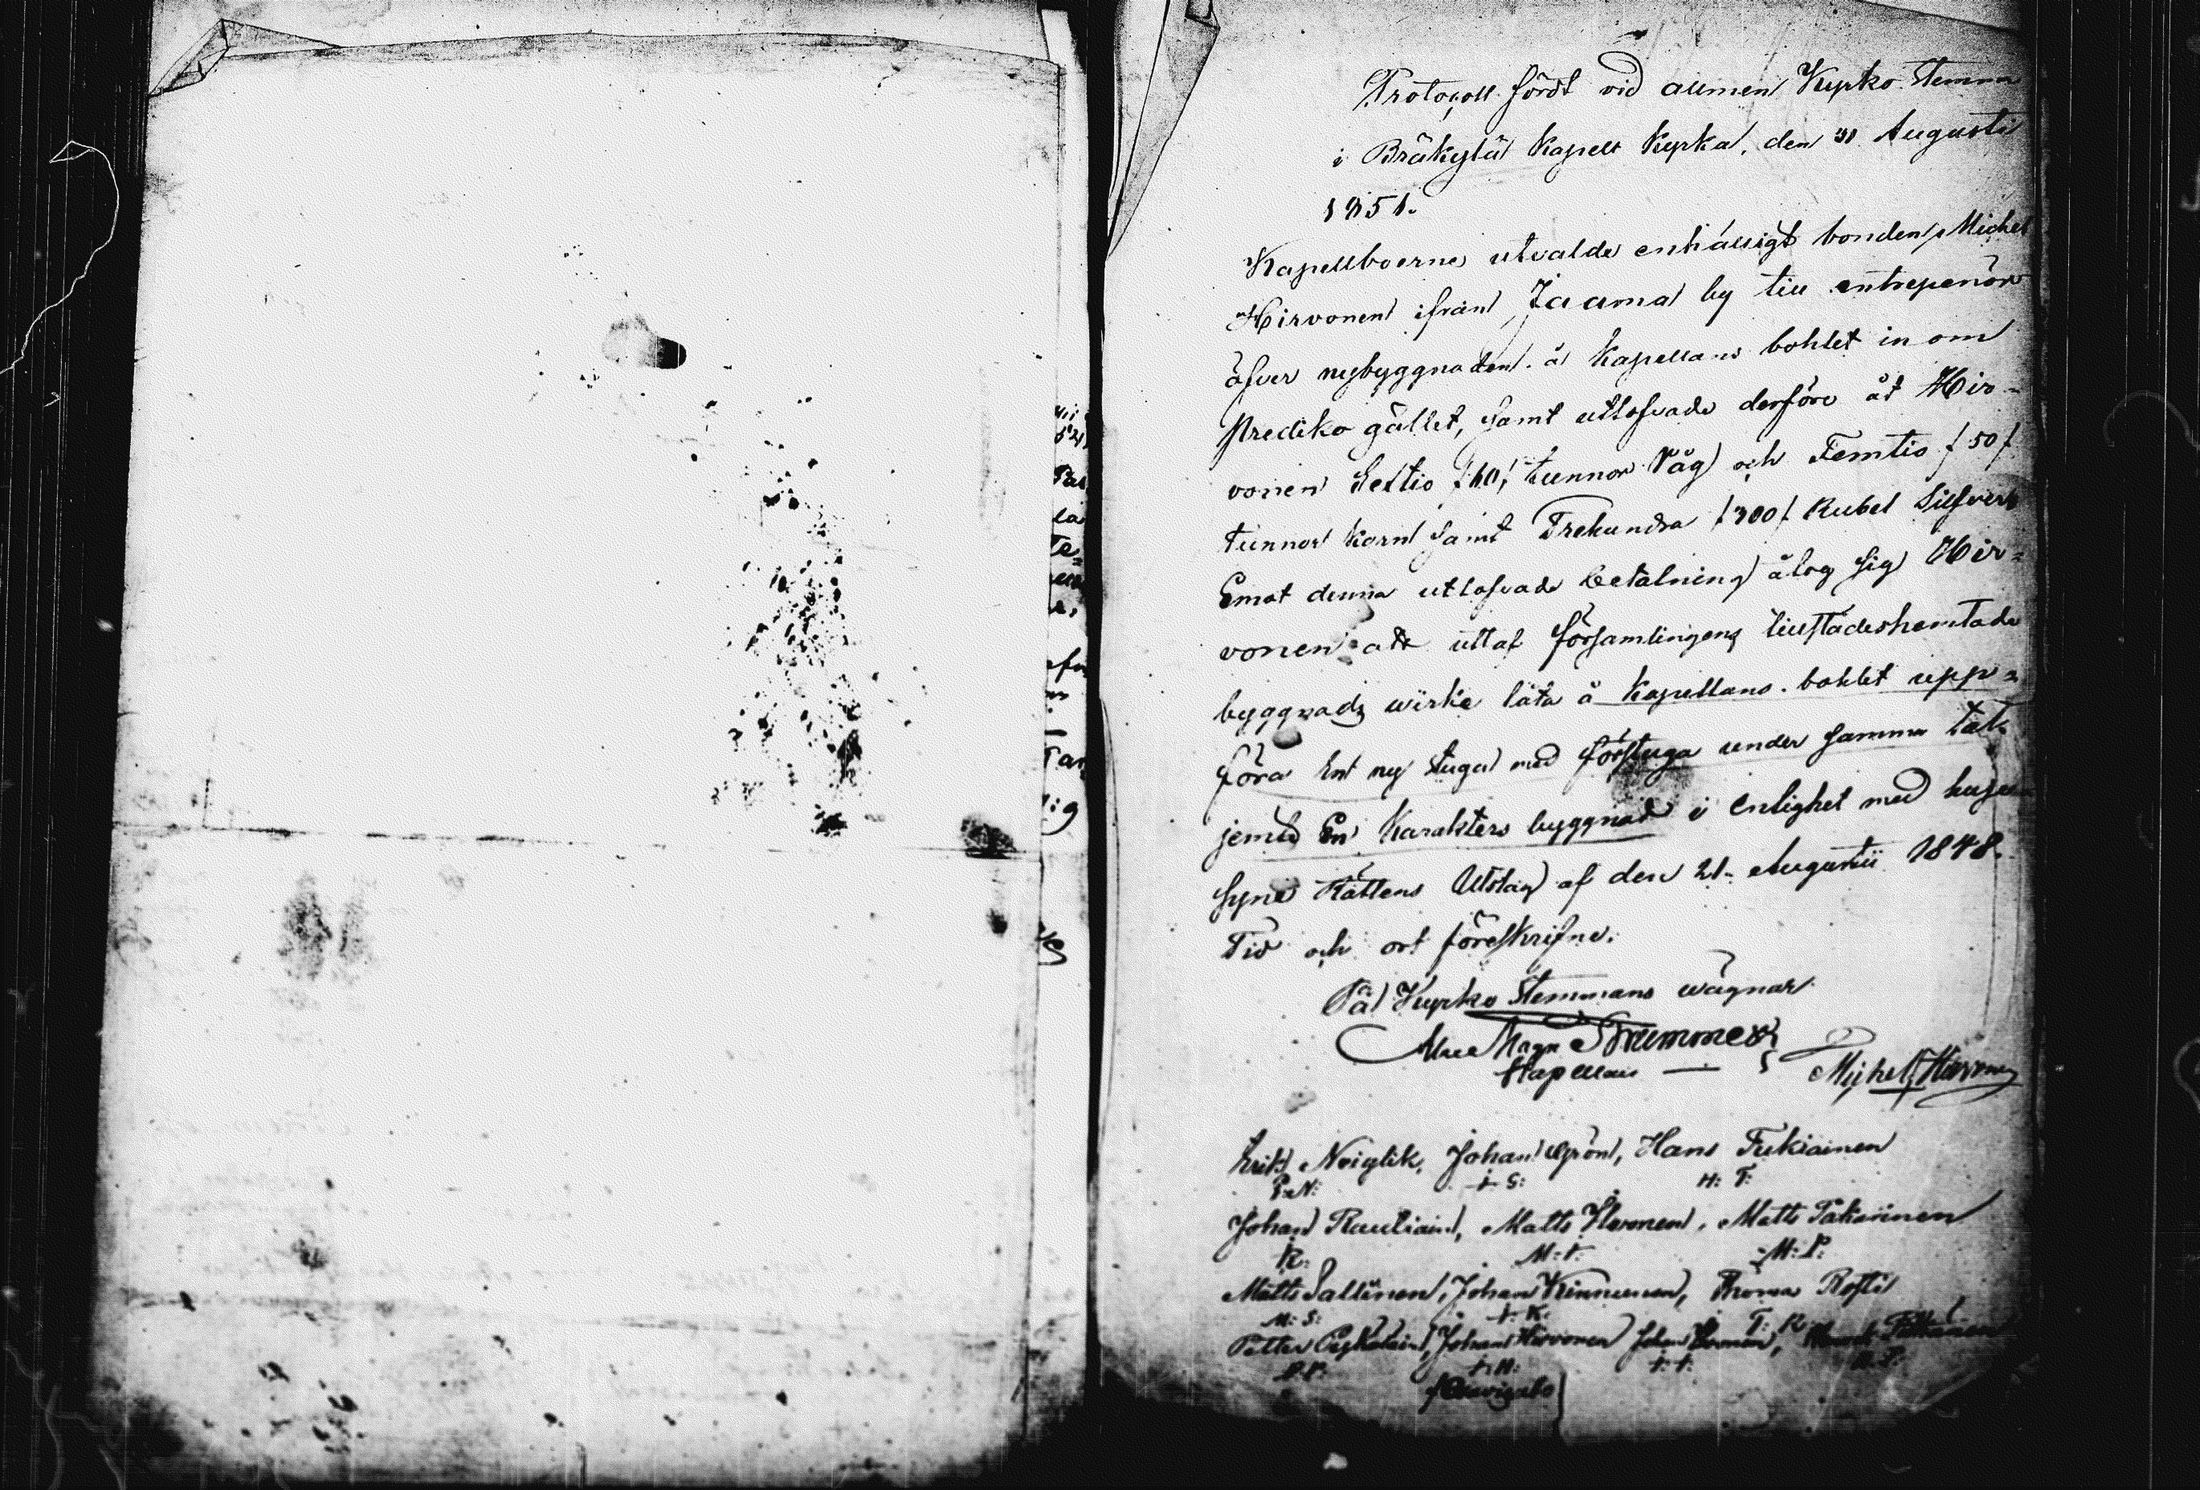 Protocoll fördt vid allmen Kyrko Stemma
i Bräkylä Kapell Kyrka, den 31 Augusti
1851.
Kapellboerne utvalde enhälligt bonden Michel
Hirvonen ifrån Jaama by till entrepenör
öfver nybyggnaden å Kapellans bohlet inom
Prediko gället, samt utlofvade derföre åt Hir-
vonen Sextio /60/ tunnor Råg och Femtio /50/
tunnor Korn samt Trehundra /300/ Rubel Silfver
Emot denna utlofvade betalningålog sig Hir=
vonen att utaf församlingens tillstädeshemtade
byggnads wirke låta å Kapellans bohlet upp=
föra Ent ny stuga med förstuga under samma tak
jemte En Karakters byggnad i Enlighet med
Syne Rättens Utslag af den 21 Augustii 1848.
Tid och ort föreskrifne.
På Kyrko Stemmans wägnar
Magn
Kapellan Michel Hirvonen
Erik Noiglik, Johan Grön, Hans Tukiainen
H: T:
Johan Rautiain, Matts, Matts
R: M: I: M: P:
Matts Sallinen, Johan Kinnunen, Thomas Rosti
M: S: I: K: T: R:
Petter, Johan Hirvonen Johan
P: P: I: H: I: I: